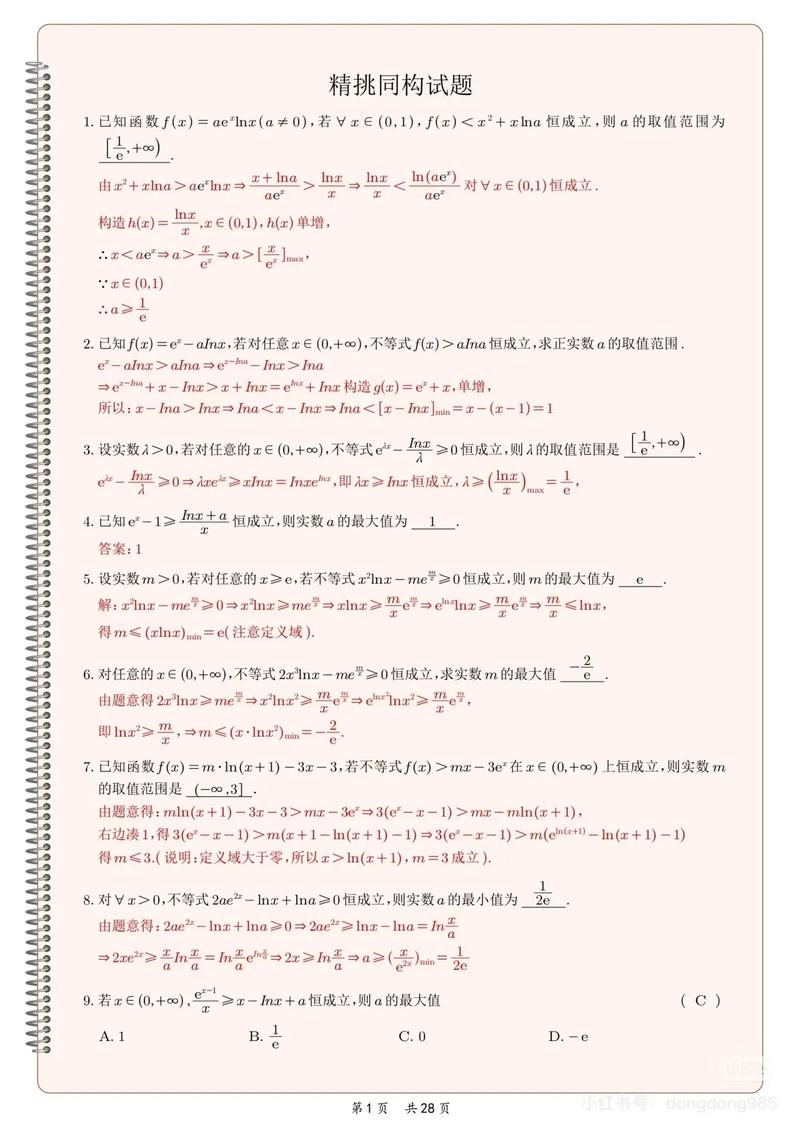 精挑同构试题
1. 已知函数 f(x) = aeˣlnx(a ≠ 0),若 ∀ x ∈ (0,1), f(x) < x² + xlna 恒成立,则 a 的取值范围为
[1/e,+∞).
由 x² + xlna > aeˣlnx ⇒ (x + lna)/(aeˣ) > lnx/x ⇒ lnx/x < ln(aeˣ)/(aeˣ) 对 ∀ x ∈ (0,1) 恒成立.
构造 h(x) = lnx/x, x ∈ (0,1), h(x) 单增,
∴ x < aeˣ ⇒ a > x/eˣ ⇒ a > [x/eˣ]max,
∵ x ∈ (0,1)
∴ a ⩾ 1/e
2. 已知 f(x) = eˣ − aInx,若对任意 x ∈ (0,+∞),不等式 f(x) > aIna 恒成立,求正实数 a 的取值范围.
eˣ − aInx > aIna ⇒ eˣ⁻ᴵⁿᵃ − Inx > Ina
⇒ eˣ⁻ᴵⁿᵃ + x − Inx > x + Inx = eᴵⁿˣ + Inx 构造 g(x) = eˣ + x,单增,
所以: x − Ina > Inx ⇒ Ina < x − Inx ⇒ Ina < [x − Inx]min = x − (x − 1) = 1
3. 设实数 λ > 0,若对任意的 x ∈ (0,+∞),不等式 e^(λx) − Inx/λ ⩾ 0 恒成立,则 λ 的取值范围是 [1/e,+∞).
e^(λx) − Inx/λ ⩾ 0 ⇒ λxe^(λx) ⩾ xInx = Inxe^(Inx),即 λx ⩾ Inx 恒成立, λ ⩾ (lnx/x)max = 1/e,
4. 已知 eˣ − 1 ⩾ (Inx + a)/x 恒成立,则实数 a 的最大值为 1.
答案: 1
5. 设实数 m > 0,若对任意的 x ⩾ e,若不等式 x²lnx − me^(m/x) ⩾ 0 恒成立,则 m 的最大值为 e.
解: x²lnx − me^(m/x) ⩾ 0 ⇒ x²lnx ⩾ me^(m/x) ⇒ xlnx ⩾ (m/x)e^(m/x) ⇒ e^(lnx)lnx ⩾ (m/x)e^(m/x) ⇒ m/x ⩽ lnx,
得 m ⩽ (xlnx)min = e(注意定义域).
6. 对任意的 x ∈ (0,+∞),不等式 2x³lnx − me^(m/x) ⩾ 0 恒成立,求实数 m 的最大值 −2/e.
由题意得 2x³lnx ⩾ me^(m/x) ⇒ x²lnx² ⩾ (m/x)e^(m/x) ⇒ e^(lnx²)lnx² ⩾ (m/x)e^(m/x),
即 lnx² ⩾ m/x, ⇒ m ⩽ (x·lnx²)min = −2/e.
7. 已知函数 f(x) = m·ln(x + 1) − 3x − 3,若不等式 f(x) > mx − 3eˣ 在 x ∈ (0,+∞) 上恒成立,则实数 m
的取值范围是 (−∞,3].
由题意得: mln(x + 1) − 3x − 3 > mx − 3eˣ ⇒ 3(eˣ − x − 1) > mx − mln(x + 1),
右边凑 1,得 3(eˣ − x − 1) > m(x + 1 − ln(x + 1) − 1) ⇒ 3(eˣ − x − 1) > m(e^(ln(x+1)) − ln(x + 1) − 1)
得 m ⩽ 3.(说明:定义域大于零,所以 x > ln(x + 1), m = 3 成立).
8. 对 ∀ x > 0,不等式 2ae^(2x) − lnx + lna ⩾ 0 恒成立,则实数 a 的最小值为 1/2e.
由题意得: 2ae^(2x) − lnx + lna ⩾ 0 ⇒ 2ae^(2x) ⩾ lnx − lna = In x/a
⇒ 2xe^(2x) ⩾ x/a In x/a = In x/a e^(In x/a) ⇒ 2x ⩾ In x/a ⇒ a ⩾ (x/e^(2x))min = 1/2e
9. 若 x ∈ (0,+∞), e^(x−1)/x ⩾ x − Inx + a 恒成立,则 a 的最大值 ( C )
A. 1 B. 1/e C. 0 D. −e
第 1 页 共 28 页
小红书
小红书号: dongdong985